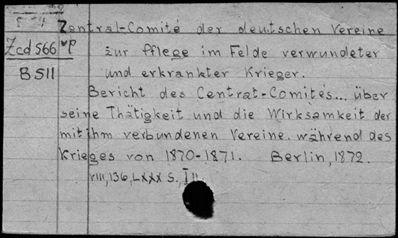 Zentral-Comité der deutschen Vereine
Zcd566 vP zur Pflege im Felde verwundeter
B511 und erkrankter Krieger.
Bericht des Central-Comités... über
seine Thätigkeit und die Wirksamkeit der
mit ihm verbundenen Vereine während des
Krieges von 1870-1871. Berlin, 1872.
VIII, 136, LXXX S.,